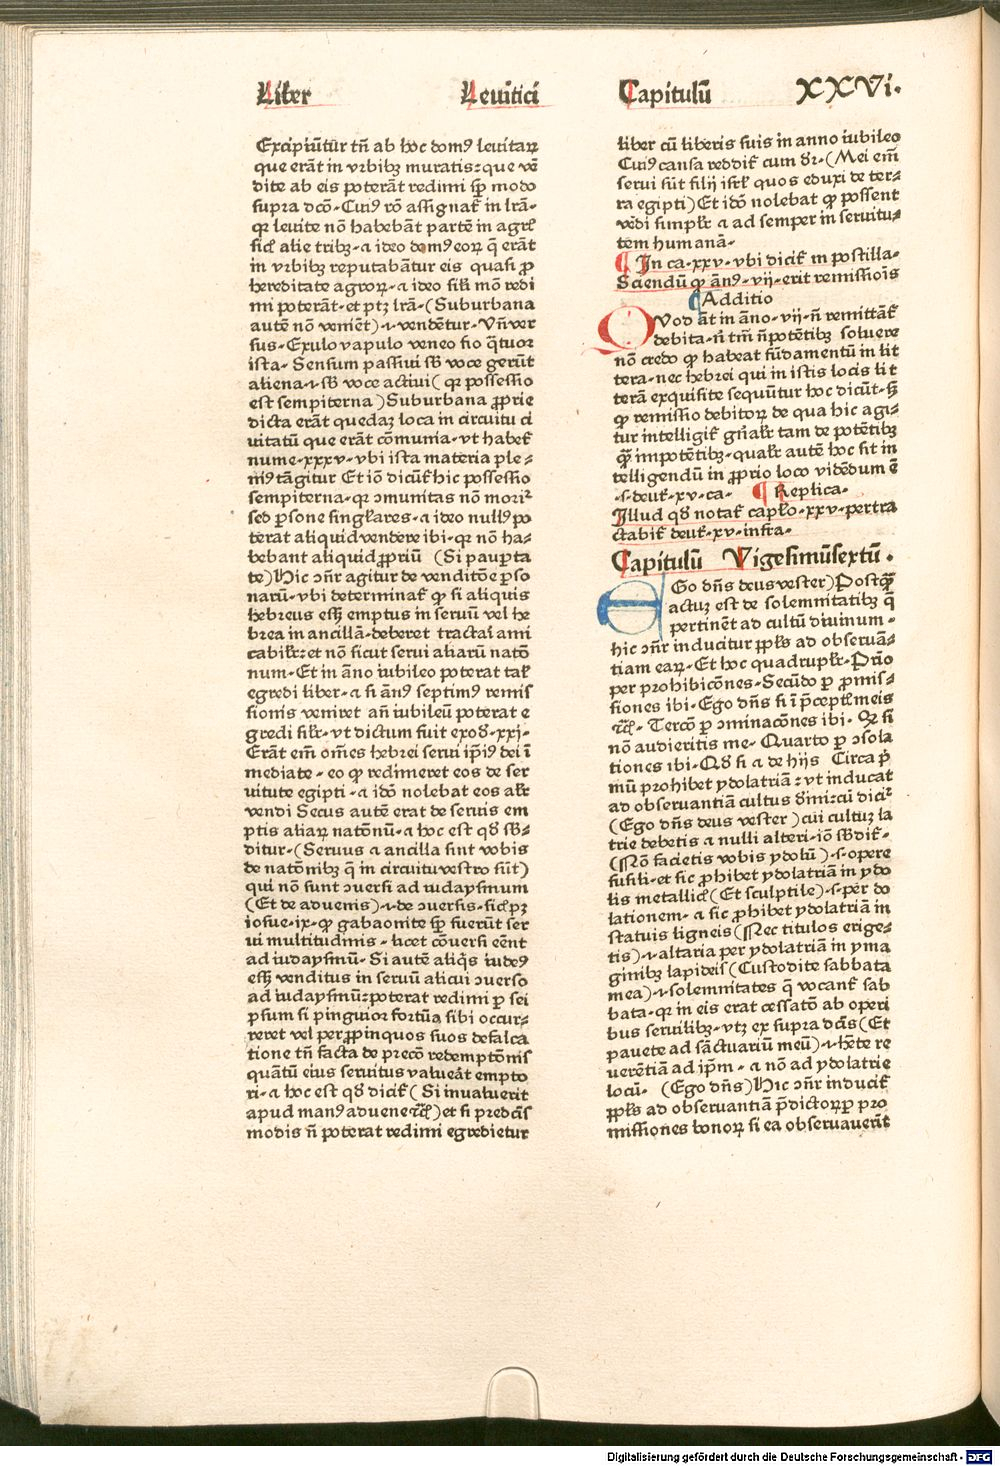 Liber Leuitici Capitulū XXVi.
Excipiūtur tñ ab hoc domꝰ leuitaꝝ
que erāt in vrbibꝫ muratis: que vē
dite ab eis poterāt redimi sꝑ modo
supra dcō. Cuiꝰ rō assignať in lrā.
qꝛ leuite nō habebāt partē in agrꝭ
sicꝭ alie tribꝫ. a ideo domꝰ eoꝝ q̄ erāt
in vrbibꝫ reputabātur eis quasi ꝓ
hereditate agroꝝ. a ideo silꝭ mō redi
mi poterāt. et ptꝫ lrā. (Suburbana
autē nō venie̅t) .i. vendētur. Vn̄ ver
sus. Exulo vapulo veneo fio q̄tuor
ista. Sensum passiui sƀ voce gerūt
aliena. i. sƀ voce actiui ( qꝛ possessio
est sempiterna ) Suburbana ꝓprie
dicta erāt quedaꝫ loca in circuitu ci
uitatū que erāt cōmunia. vt habeť
nume. xxxv. vbi ista materia ple⸗
niꝰ tāgitur Et iō dicūť hic possessio
sempiterna. qꝛ ↄmunitas nō moriť
sed ꝑsone singłares. a ideo nullꝰ po
terat aliquid vendere ibi. qꝛ nō ha⸗
bebant aliquid ꝓpriū (Si pauꝑta
te) Hic ↄn̄r agitur de venditōe ꝑso
narū. vbi determinať ꝙ si aliquis
hebreus esꝫ emptus in seruū vel he
brea in ancillā. deberet tractaī ami
cabilꝭr: et nō sicut serui aliarū natō
num. Et in āno iubileo poterat talꝭ
egredi liber. a si ānꝰ septimꝰ remis
sionis veniret añ iubileū poterat e
gredi silꝭr. vt dictum fuit exoƌ. xxj.
Erāt em̄ om̄es hebrei serui ip̄iꝰ dei ī
mediate. eo ꝙ redimeret eos de ser
uitute egipti. a idō nolebat eos alꝭr
vendi Secus autē erat de seruis em
ptis aliaꝝ natōnū. a hoc est qƌ sƀ⸗
ditur. (Seruus a ancilla sint vobis
de natōnibꝫ q̄ in circuitu vestro sūt)
qui nō sunt ↄuersi ad iudaysmum
(Et de aduenis) .i. de ↄuersis. sicꝭ pꝫ
iosue. ix. ꝙ gabaonite sꝑ fuerūt ser
ui multitudinis. licet cōuersi eēnt
ad iudaysmū. Si autē aliq̄s iudeꝰ
esꝫ venditus in seruū alicui ↄuerso
ad iudaysmū: poterat redimi ꝑ sei
psum si pinguior fortūa sibi occur⸗
reret vel per ꝓpinquos suos defalca
tione tñ facta de precō redemptōnis
quātū eius seruitus valueāt empto
ri. a hoc est qƌ diciť ( Si inualuerit
apud manꝰ aduene ꝛc̄) et si predcīs
modis ñ poterat redimi egredietur
liber cū liberis suis in anno iubileo
Cuiꝰ causa reddiť cum ƌr. (Mei em̄
serui sūt filij isrł quos eduxi de ter⸗
ra egipti) Et idō nolebat ꝙ possent
vēdi simplꝭr a ad semper in seruitu⸗
tem humanā.
¶ In ca. xxv. vbi diciť in postilla.
Sciendū ꝙ ānꝰ. vij. erit remissiōis
¶Additio
QVod āt in āno. vij. ñ remittāť
debita. ñ tm̄ ñpotētibꝫ soluere
nō credo ꝙ habeat fūdamentū in lit
tera. nec hebrei qui in istis locis lit
terā exquisite sequūtur hoc dicūt. sꝫ
ꝙ remissio debitoꝝ de qua hic agi⸗
tur intelligiť gñalꝭr tam de potētibꝫ
ꝙ̄ impotētibꝫ. qualꝭr autē hoc sit in
telligendū in ꝓprio loco vidēdum ē
.s. deuť. xv. ca. ¶ Replica.
Illud qƌ notať capło. xxv. pertra
ctabiť deuť. xv. infra.
Capitulū Vigesimūsextū.
EGo dñs deus vester) Postꝙ̄
actuꝫ est de solemnitatibꝫ q̄
pertinēt ad cultū diuinum.
hic ↄn̄r inducitur ꝓpłs ad obseruā⸗
tiam eaꝝ. Et hoc quadruplꝭr. Prīo
per prohibicōnes. Secūdo ꝑ ꝓmis⸗
siones ibi. Ego dñs si ī p̄ceptꝭ meis
ꝛc̄. Tercō ꝑ ↄminacōnes ibi. Qꝫ si
nō audieritis me. Quarto ꝑ ↄsola
tiones ibi. Qƌ si a de hijs Circa pͥ
mū prohibet ydolatriā: vt inducat
ad obseruantiā cultus ƌīni: cū diciť
(Ego dñs deus vester ) cui cultuꝫ la
trie debetis a nulli alteri. iō sƀdiť.
(Nō facietis vobis ydolū ) .s. opere
fusili. et sic ꝓhibet ydolatriā in ydo
lis metallicꝭ (Et sculptile) .s. per do
lationem. a sic ꝓhibet ydolatriā in
statuis ligneis (Nec titulos erige⸗
tis) .i. altaria per ydolatriā in yma
ginibꝫ lapideis (Custodite sabbata
mea) .i. solemnitates q̄ vocanť sab
bata. qꝛ in eis erat cessatō ab operi
bus seruilibꝫ. vtꝫ ex supra dcīs (Et
pauete ad sāctuariū meū) .i. hēte re
uerētiā ad ip̄m. a nō ad ydolatrie
locū. (Ego dñs) Hic ↄn̄r induciť
ꝓpłs ad obseruantiā p̄dictoꝝ ꝑ pro
missiones bonoꝝ si ea obseruauerīt
Digitalisierung gefördert durch die Deutsche Forschungsgemeinschaft - DFG